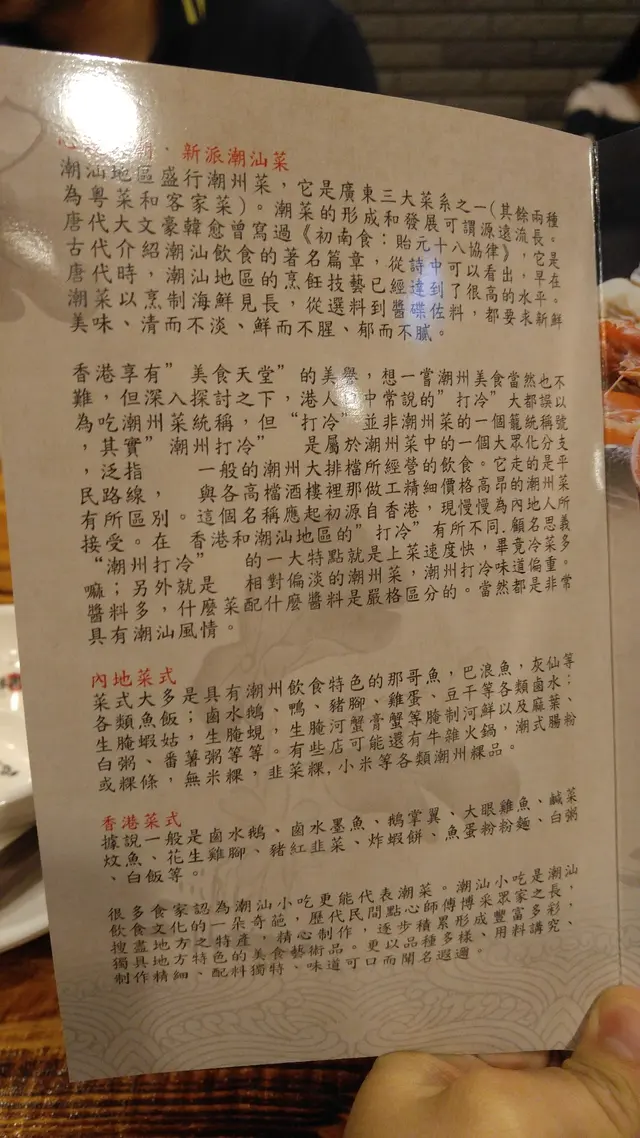 新派潮汕菜
潮汕地區盛行潮州菜，它是廣東三大菜系之一(其餘兩種
為粵菜和客家菜)。潮菜的形成和發展可謂源遠流長。
唐代大文豪韓愈曾寫過《初南食：貽元十八協律》，它是
古代介紹潮汕飲食的著名篇章，從詩中可以看出，早在
唐代時，潮汕地區的烹飪技藝已經達到了很高的水平。
潮菜以烹制海鮮見長，從選料到醬碟佐料，都要求新鮮
美味、清而不淡、鮮而不腥、郁而不膩。
香港享有” 美食天堂”的美譽，想一嘗潮州美食當然也不
難，但深入探討之下，港人口中常說的” 打冷”大都誤以
為吃潮州菜統稱，但“打冷”並非潮州菜的一個籠統稱號
，其實”潮州打冷” 是屬於潮州菜中的一個大眾化分支
，泛指 一般的潮州大排檔所經營的飲食。它走的是平
民路線， 與各高檔酒樓裡那做工精細價格高昂的潮州菜
有所區別。這個名稱應起初源自香港，現慢慢為內地人所
接受。在 香港和潮汕地區的”打冷”有所不同.顧名思義
“潮州打冷” 的一大特點就是上菜速度快，畢竟冷菜多
嘛；另外就是 相對偏淡的潮州菜，潮州打冷味道偏重。
醬料多，什麼菜配什麼醬料是嚴格區分的。當然都是非常
具有潮汕風情。
內地菜式
菜式大多是具有潮州飲食特色的那哥魚，巴浪魚，灰仙等
各類魚飯；鹵水鵝、鴨、豬腳、雞蛋、豆干等各類鹵水；
生腌蝦姑，生腌蜆，生腌河蟹膏蟹等腌制河鮮以及麻葉、
白粥、番薯粥等等。有些店可能還有牛雜火鍋，潮式腸粉
或粿條，無米粿，韭菜粿,小米等各類潮州粿品。
香港菜式
據說一般是鹵水鵝、鹵水墨魚、鵝掌翼、大眼雞魚、鹹菜
炆魚、花生雞腳、豬紅韭菜、炸蝦餅、魚蛋粉粉麵、白粥
、白飯等。
很多食家認為潮汕小吃更能代表潮菜。潮汕小吃是潮汕
飲食文化的一朵奇葩，歷代民間點心師傅博采眾家之長，
搜盡地方之特產，精心制作，逐步積累形成豐富多彩，
獨具地方特色的美食藝術品。更以品種多樣、用料講究、
制作精細、配料獨特、味道可口而聞名遐邇。